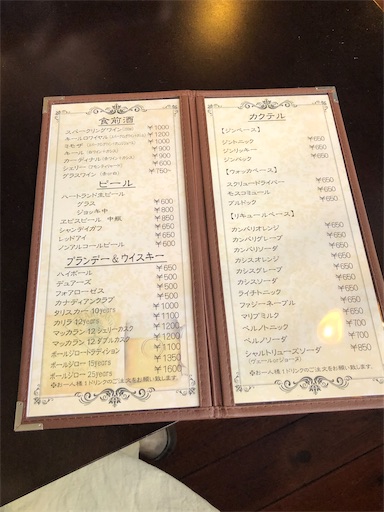 食前酒
スパークリングワイン ¥1000
キールロワイヤル ¥1200
ミモザ ¥1000
キール ¥1000
カーディナル ¥900
シェリー ¥600
グラスワイン ¥750~
ビール
ハートランド生ビール
グラス ¥600
ジョッキ中 ¥800
エビスビール 中瓶 ¥850
シャンディガフ ¥650
レッドアイ ¥650
ノンアルコールビール ¥600
ブランデー&ウイスキー
ハイボール ¥650
デュアーズ ¥500
フォアローゼス ¥500
カナディアンクラブ ¥500
タリスカー 10years ¥1000
カリラ 12years ¥1100
マッカラン 12 シェリーカスク ¥1200
マッカラン 12 ダブルカスク ¥1200
ポールジロー トラディション ¥1100
ポールジロー 15years ¥1350
ポールジロー 25years ¥1600
※お一人様1ドリンクのご注文をお願い致します。
カクテル
【ジンベース】
ジントニック ¥650
ジンリッキー ¥650
ジンバック ¥650
【ウォッカベース】
スクリュードライバー ¥650
モスコミュール ¥650
ブルドック ¥650
【リキュールベース】
カンパリオレンジ ¥650
カンパリグレープ ¥650
カンパリソーダ ¥650
カシスオレンジ ¥650
カシスグレープ ¥650
カシスソーダ ¥650
ライチトニック ¥650
ファジーネーブル ¥650
マリブミルク ¥650
ペルノトニック ¥700
ペルノソーダ ¥700
シャルトリューズソーダ ¥850
(ヴェール or ジョーヌ)
※お一人様1ドリンクのご注文をお願い致します。